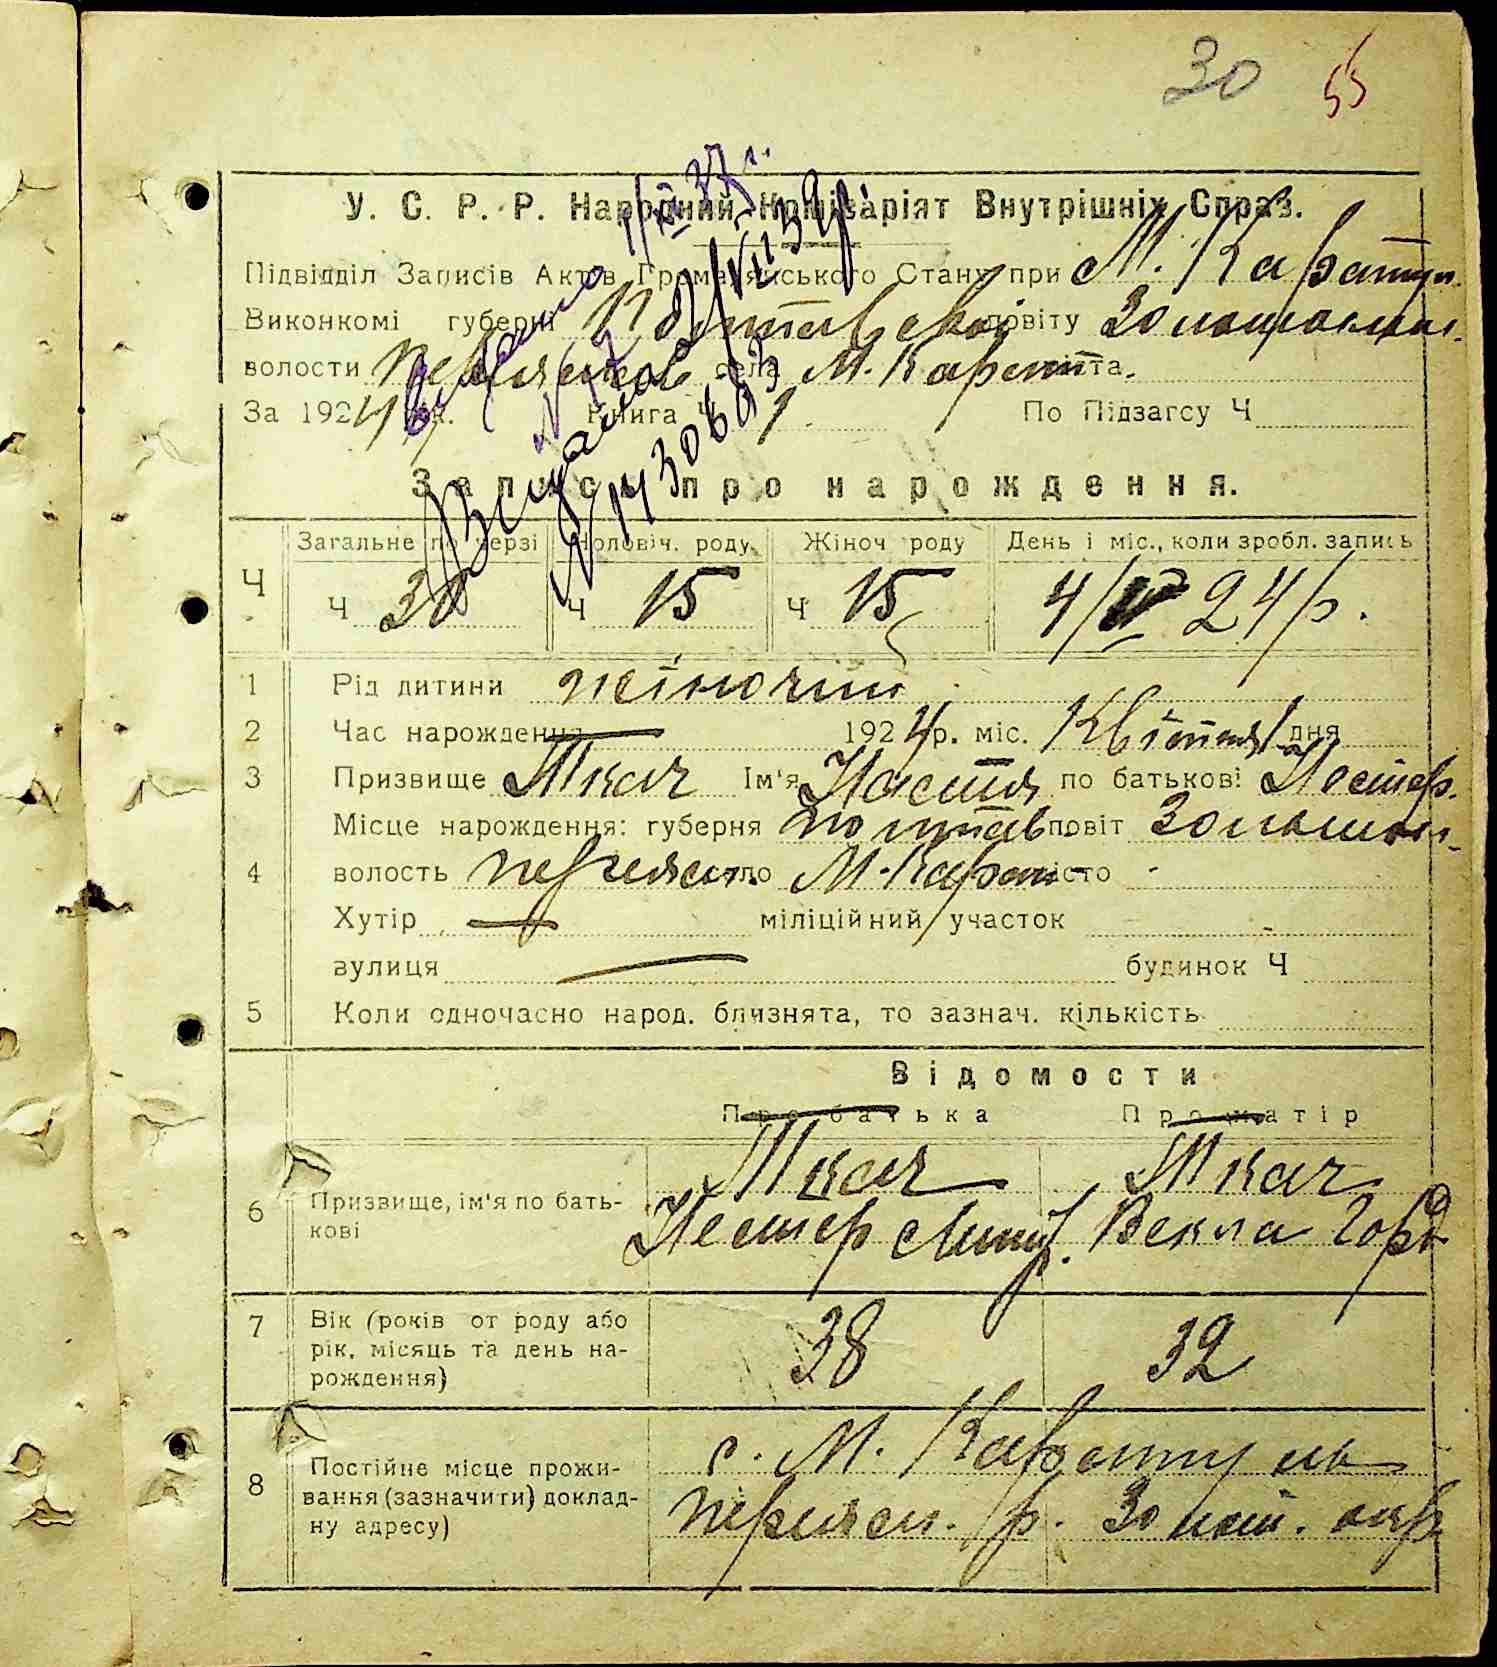 30 55
У. С. Р. Р. Народний Комісаріят Внутрішніх Справ.
Підвідділ Записів Актів Громадянського Стану при М. Каратул.
Виконкомі губерні Полтавської повіту Золотоніськ.
волости Переяславс села М. Карат міста.
За 1924 рік. Книга Ч 1 По Підзагсу Ч
Видано 1/XII 37 р.
Видано 2/VII 39 р.
Запись про нарождення.
Загальне по черзі Чоловіч. роду Жіноч роду День і міс., коли зробл. запись
Ч Ч 30 Ч 15 Ч 15 4/IV 24 р.
1 Рід дитини жіночий
2 Час нарождення 1924 р. міс. Квітня 1 дня
3 Призвище Ткач Ім'я Настя по батькові Нестер.
Місце нарождення: губерня Полтав повіт Золотон.
4 волость Переяслав. село М. Карат місто -
Хутір — міліційний участок -
вулиця — будинок Ч
5 Коли одночасно народ. близнята, то зазнач. кількість
Відомости
Про батька Про матір
Ткач Ткач
6 Призвище, ім'я по бать-
кові
Нестер Векла Горд
7 Вік (років от роду або
рік, місяць та день на-
рождення)
38 32
8 Постійне місце прожи-
вання (зазначити) доклад-
ну адресу)
с. М. Каратуль
Переясл. р. Золот. окр.